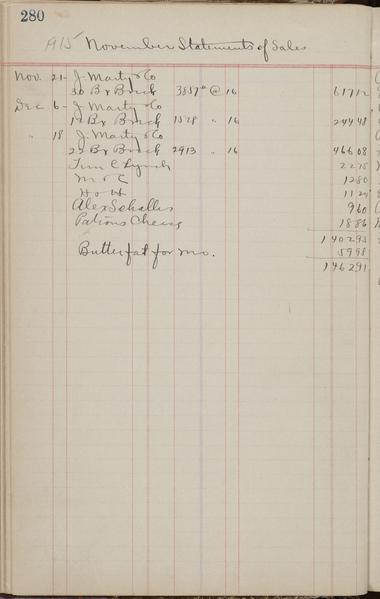 280
1915 November Statements of Sales
Nov. 21 - J. Marty & Co
30 Bx Brick 3857 # @ 16 617 12
Dec 6 - J. Marty & Co
12 Bx Brick 1528 " 16 244 48
" 18 J. Marty & Co
23 Bx Brick 2913 " 16 466 08
Tim C Lynch 22 75
M & C 12 80
H & H 11 24
Alex Schallis 9 60
Patrons Cheese 18 86
1402 93
Butterfat for mo. 59 98
1462 91